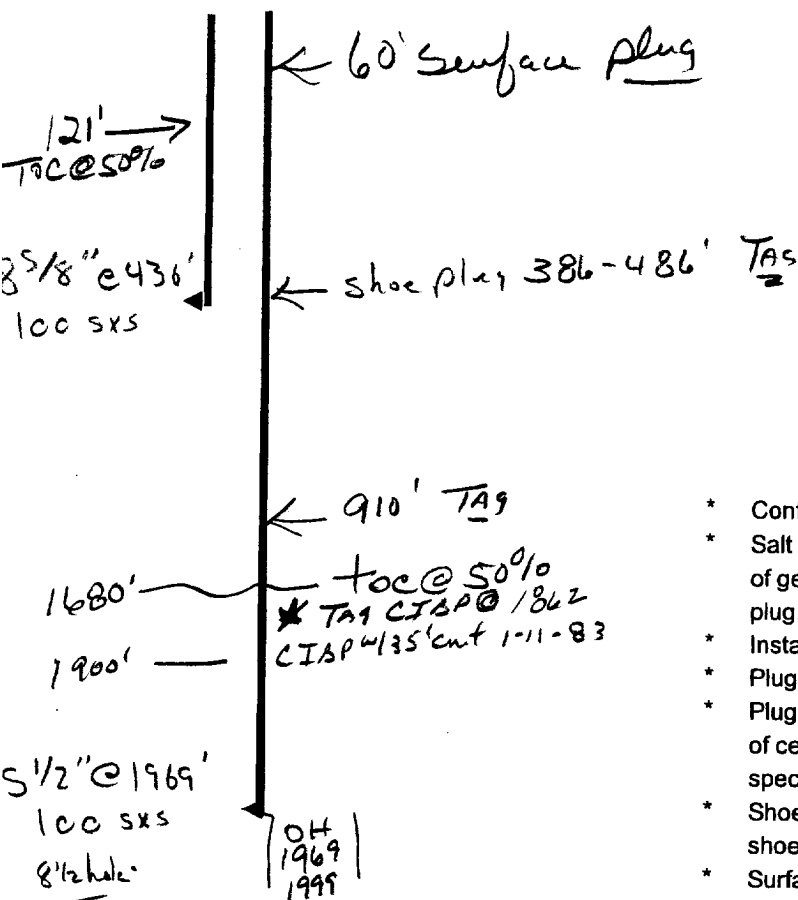 60' Surface plug
121'
TOC @ 50%
8 5/8" @ 436'
100 sxs
shoe plug 386-486' TAG
910' TAG
1680'
toc @ 50%
* TAG CIBP @ 1862
CIBP w/35' cmt 1-11-83
1900'
5 1/2" @ 1969'
100 sxs
8 1/2 hole
OH
1969
1999
* Cont
* Salt
of ge
plug
* Insta
* Plug
* Plug
of ce
spec
* Shoe
shoe
* Surfa